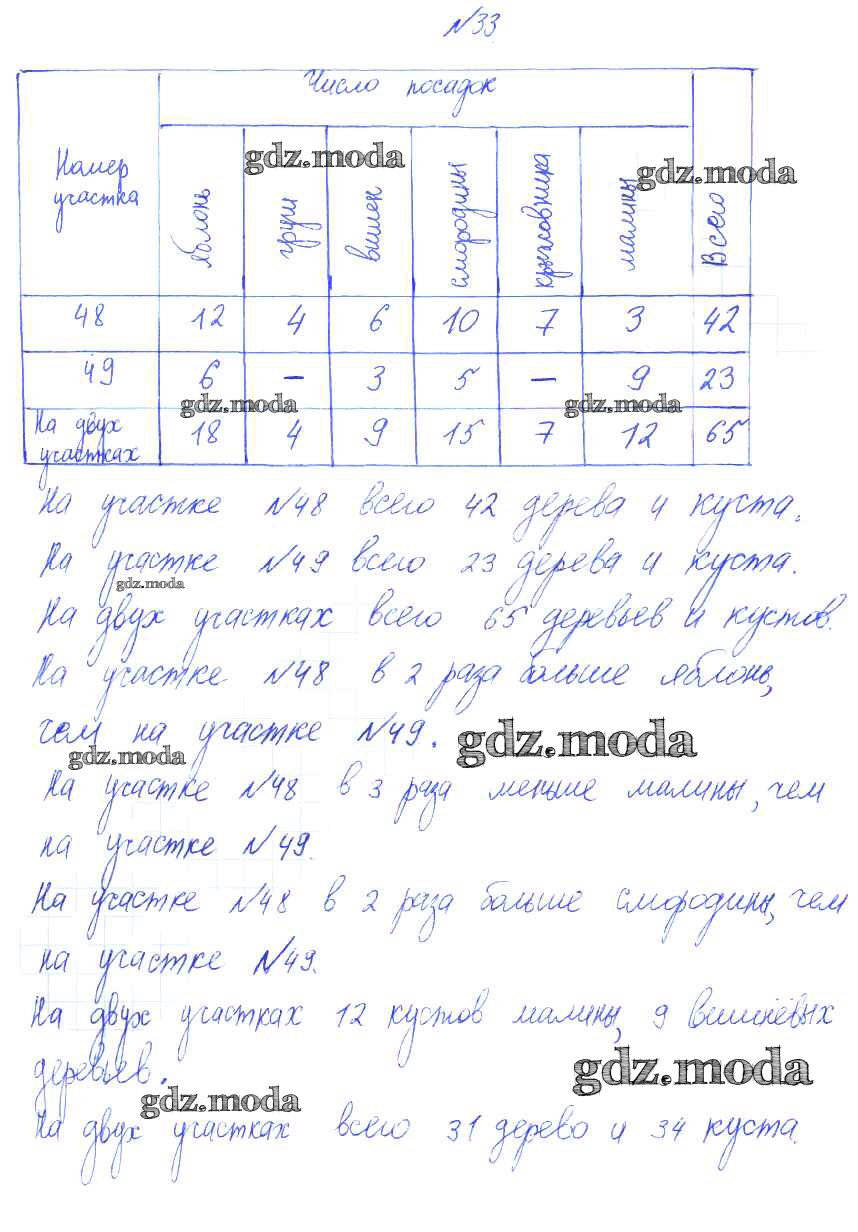 №33
Число посадок
Номер участка
яблонь
груш
вишен
смородины
крыжовника
малины
Всего
gdz.moda
gdz.moda
48 12 4 6 10 7 3 42
49 6 — 3 5 — 9 23
gdz.moda
gdz.moda
На двух участках 18 4 9 15 7 12 65
На участке №48 всего 42 дерева и куста.
На участке №49 всего 23 дерева и куста.
gdz.moda
На двух участках всего 65 деревьев и кустов.
На участке №48 в 2 раза больше яблонь,
чем на участке №49.
gdz.moda
gdz.moda
На участке №48 в 3 раза меньше малины, чем
на участке №49.
На участке №48 в 2 раза больше смородины, чем
на участке №49.
На двух участках 12 кустов малины, 9 вишнёвых
деревьев.
gdz.moda
gdz.moda
На двух участках всего 31 дерево и 34 куста.